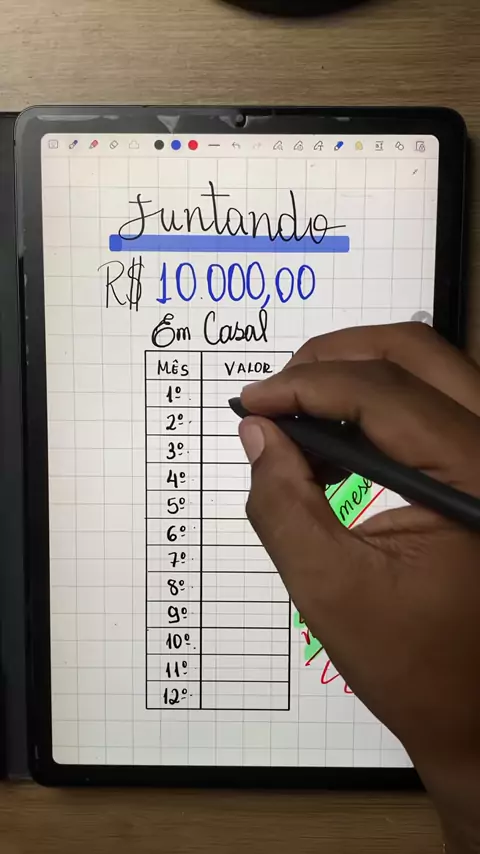 Juntando
R$ 10.000,00
Em Casal
MÊS VALOR
1º
2º
3º
4º
5º
6º
7º
8º
9º
10º
11º
12º